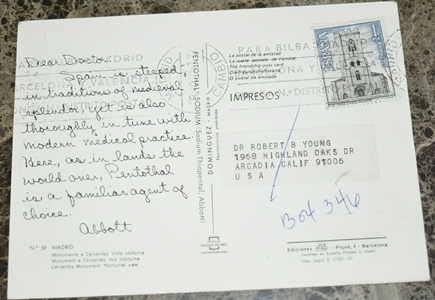 Dear Doctor:
Spain is steeped
in traditions of medieval
splendor, yet is also
thoroughly in tune with
modern medical practice.
Here, as in lands the
world over, Pentothal
is a familiar agent of
choice.
Abbott
N.º 59 MADRID
Monumento a Cervantes. Vista nocturna
Monument a Cervantes. Vue nocturne
Cervantes Monument. Nocturnal view
PENTOTHAL SODIUM (Sodium Thiopental, Abbott)
DOMINGUEZ - MADRID
Reproducción prohibida
La postal de la amistad
La carte postale de l'amitié
The friendship post card
Die Freundschaftskarte
O postal da amizade
IMPRESOS
ESPAÑA
CORREOS
PARA BILBAO
DR ROBERT B YOUNG
1968 HIGHLAND OAKS DR
ARCADIA CALIF 91006
U S A
Box 346
Ediciones Piqué, Barcelona